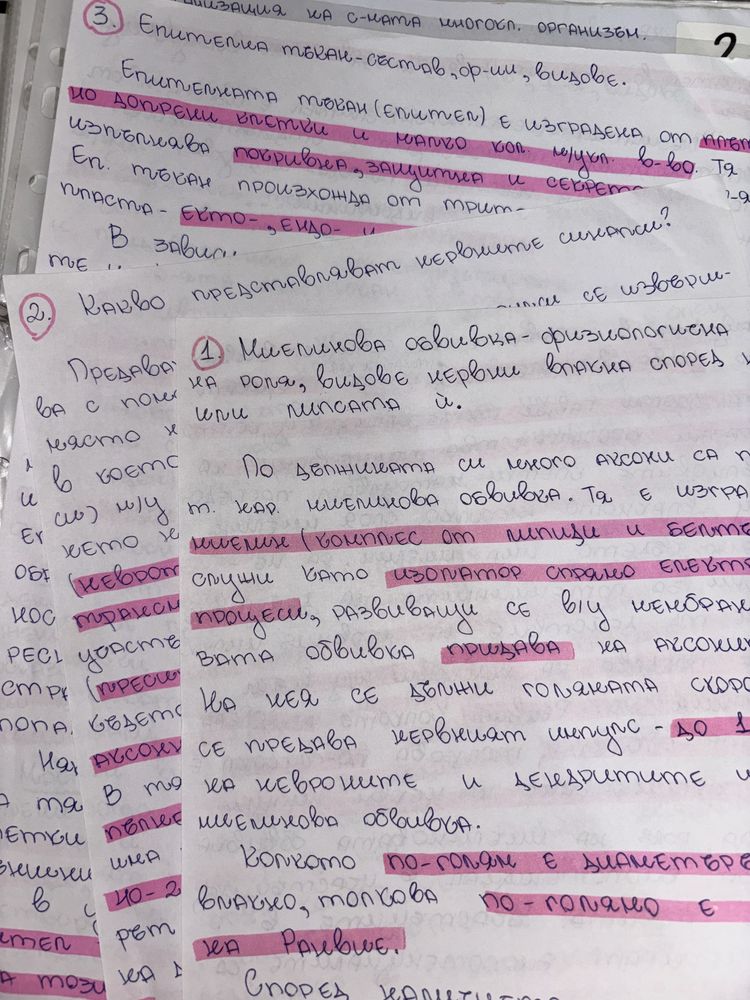 НИЗАЦИЯ НА С-МАТА МНОГОКЛ. ОРГАНИЗЪМ.
2
3. ЕПИТЕЛНА ТЪКАН-СЪСТАВ, ФР-ИИ, ВИДОВЕ.
ЕПИТЕЛНАТА ТЪКАН (ЕПИТЕЛ) Е ИЗГРАДЕНА ОТ ПЛЪТ
НО ДОПРЕНИ КЛЕТКИ И МАЛКО КОЛ. М/УКЛ. В-ВО. ТЯ
ИЗПЪЛНЯВА ПОКРИВНА, ЗАЩИТНА И СЕКРЕТО
ЕП. ТЪКАН ПРОИЗХОЖДА ОТ ТРИТ
ПЛАСТА - ЕКТО-, ЕНДО- И
В ЗАВИС
ТЕ И
2. КАКВО ПРЕДСТАВЛЯВАТ НЕРВНИТЕ СИНАПСИ?
СЕ ИЗВЪРШ-
ПРЕДАВА
ВА С ПОМ
МЯСТО
В КОЕТО
СМ) М/У
КЕТО
(НЕВРОТ
ТРАНСМ
УЧАСТЪ
(ПРЕСИ
КЪДЕТО
АКСОН
В ТЯ
ПЪЛНЕ
ЩНА
НО-2
РЕТ
НА
ОБ
НОС
РЕС
СТР
ПОПА
НЯ
А ТЯ
ЕТКИ
В
ИТЕЛ
А ТОЗИ
1. МИЕЛИНОВА ОБВИВКА-ФИЗИОЛОГИЧНА
НА РОЛЯ, ВИДОВЕ НЕРВНИ ВЛАКНА СПОРЕД Н
ИЛИ ЛИПСАТА Й.
ПО ДЪЛЖИНАТА СИ МНОГО АКСОНИ СА П
Т. НАР. МИЕЛИНОВА ОБВИВКА. ТЯ Е ИЗГРА
МИЕЛИН (КОМПЛЕС ОТ ЛИПИДИ И БЕЛТЪ
СЛУЖИ КАТО ИЗОЛАТОР СПРЯМО ЕЛЕКТР
ПРОЦЕСИ, РАЗВИВАЩИ СЕ В/У МЕМБРАН
ВАТА ОБВИВКА ПРИДАВА НА АКСОНИ
НА НЕЯ СЕ ДЪЛЖИ ГОЛЯМАТА СКОРО
СЕ ПРЕДАВА НЕРВНИЯТ ИМПУЛС - ДО 1
НА НЕВРОНИТЕ И ДЕНДРИТИТЕ И
МИЕЛИНОВА ОБВИВКА.
КОЛКОТО ПО-ГОЛЯМ Е ДИАМЕТЪРЪ
ВЛАКНО, ТОЛКОВА ПО-ГОЛЯМО Е
НА РАНВИЕ.
СПОРЕД НАЛИЧИЕТО